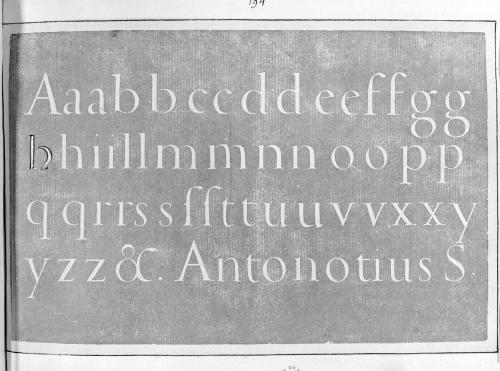 194
Aaabbccddeeffgg
hhiillmmnnoopp
qqrrssſſttuuvvxxy
yzz&. Antonotius S.